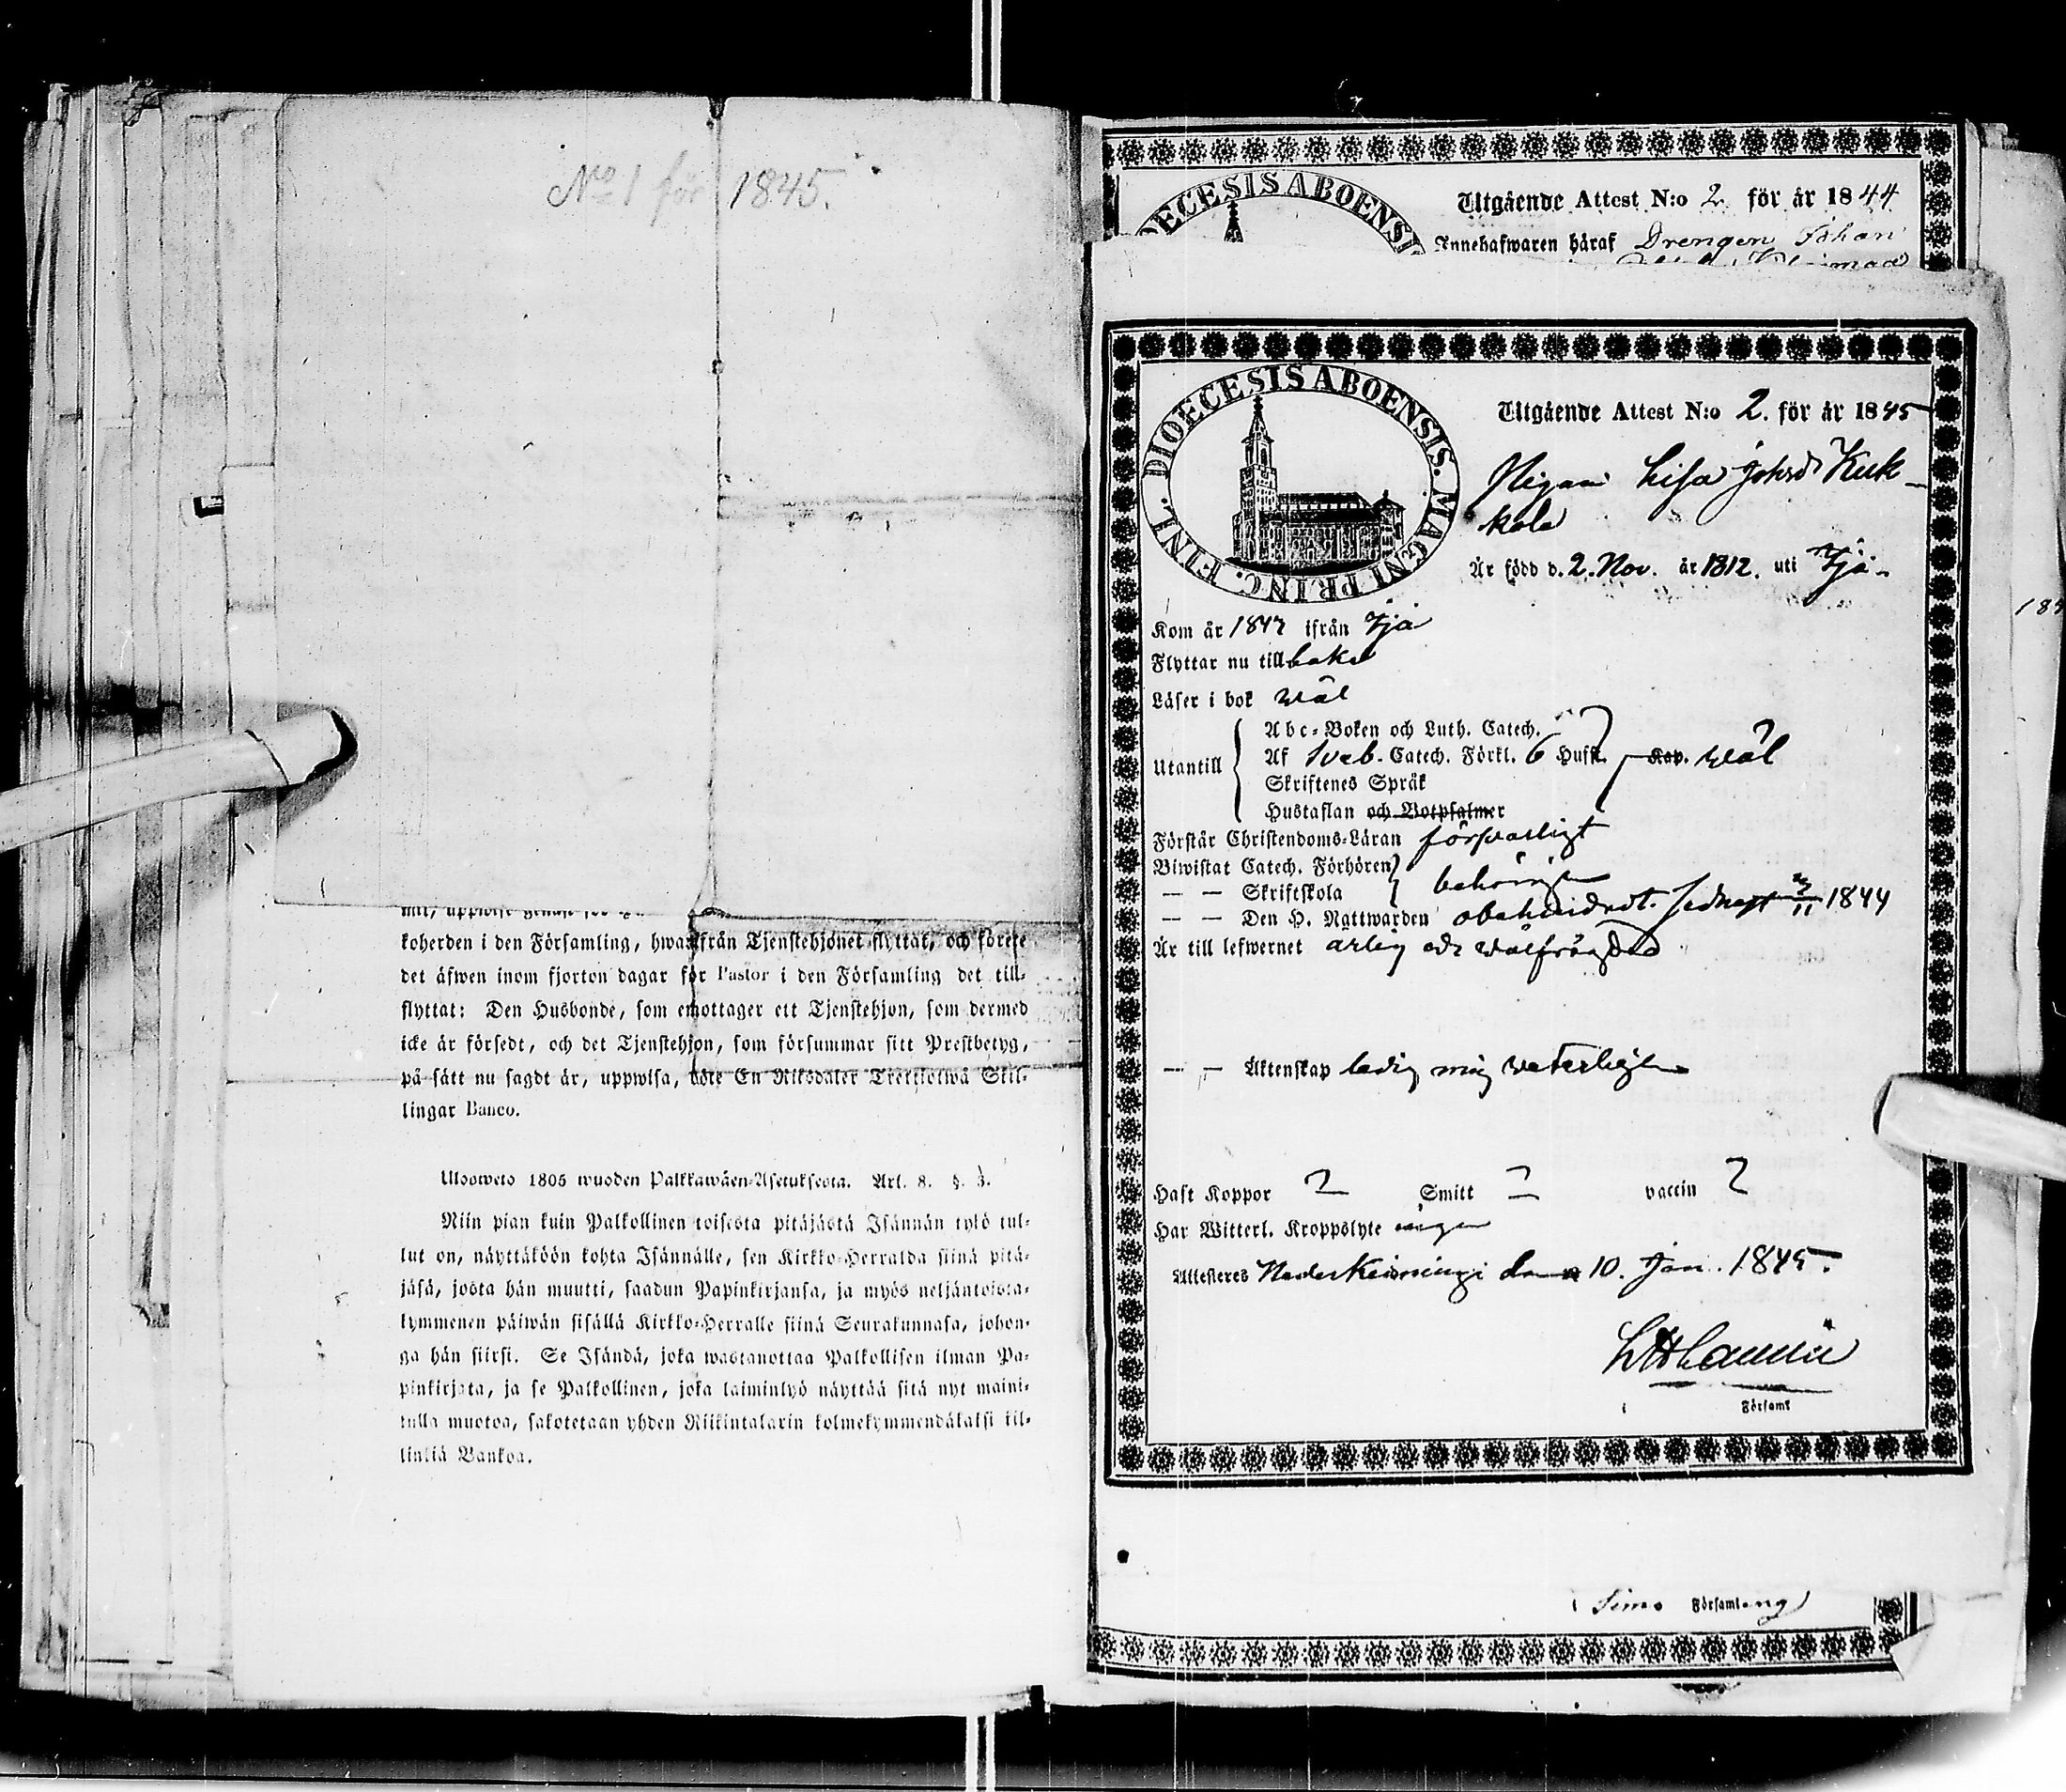 No 1 för 1845.
koherden i den Församling, hwarifrån Tjenstehjonet flyttat, och förete
det äfwen inom fjorton dagar för Pastor i den Församling det till-
flyttat: Den Husbonde, som emottager ett Tjenstehjon, som dermed
icke är försedt, och det Tjenstehjon, som försummar sitt Prestbetyg,
på sätt nu sagdt är, uppwisa, böte En Riksdaler Trettiotwå Skil-
lingar Banco.
Ulosweto 1805 wuoden Palkkawäen-Asetuksesta. Art. 8. §. 3.
Niin pian kuin Palkollinen toisesta pitäjästä Isännän tykö tul-
lut on, näyttäköön kohta Isännälle, sen Kirkko-Herralda siinä pitä-
jäsä, josta hän muutti, saadun Papinkirjansa, ja myös neljäntoista-
kymmenen päiwän sisällä Kirkko-Herralle siinä Seurakunnasa, johon-
ga hän siirsi. Se Isändä, joka wastanottaa Palkollisen ilman Pa-
pinkirjata, ja se Palkollinen, joka laiminlyö näyttää sitä nyt maini-
tulla muotoa, sakotetaan yhden Riikintalarin kolmekymmendäkaksi kil-
linkiä Bankoa.
DIOECESIS ABOENSI
Utgående Attest N:o 2 för år 1844
Innehafwaren häraf Drengen Johan
DIOECESIS ABOENSIS. MAGNI PRINC. FINL.
Utgående Attest N:o 2. för år 1845
Pigan Lisa Johsd Kuk-
kola
Är född d. 2. Nov. år 1812. uti
Kom år 1842 ifrån
Flyttar nu tillbaka
Läser i bok wäl
Utantill
Abc-Boken och Luth. Catech.
Af Sveb. Catech. Förkl. 6 Hufst. Kap. wäl
Skriftenes Språk
Hustaflan och Botpsalmer
Förstår Christendoms-Läran försvarligt
Biwistat Catech. Förhören
— — Skriftskola behörigen
— — Den H. Nattwarden obehindradt. sednast 1844
Är till lefwernet ärlig och wälfrägdad
— — Äktenskap ledig mig veterligen
Haft Koppor ? Smitt ? vaccin ?
Har Witterl. Kroppslyte ingen
Attesteras Neder Keiningi den 10. Jan. 1845.
i Församl
i Simo Församling